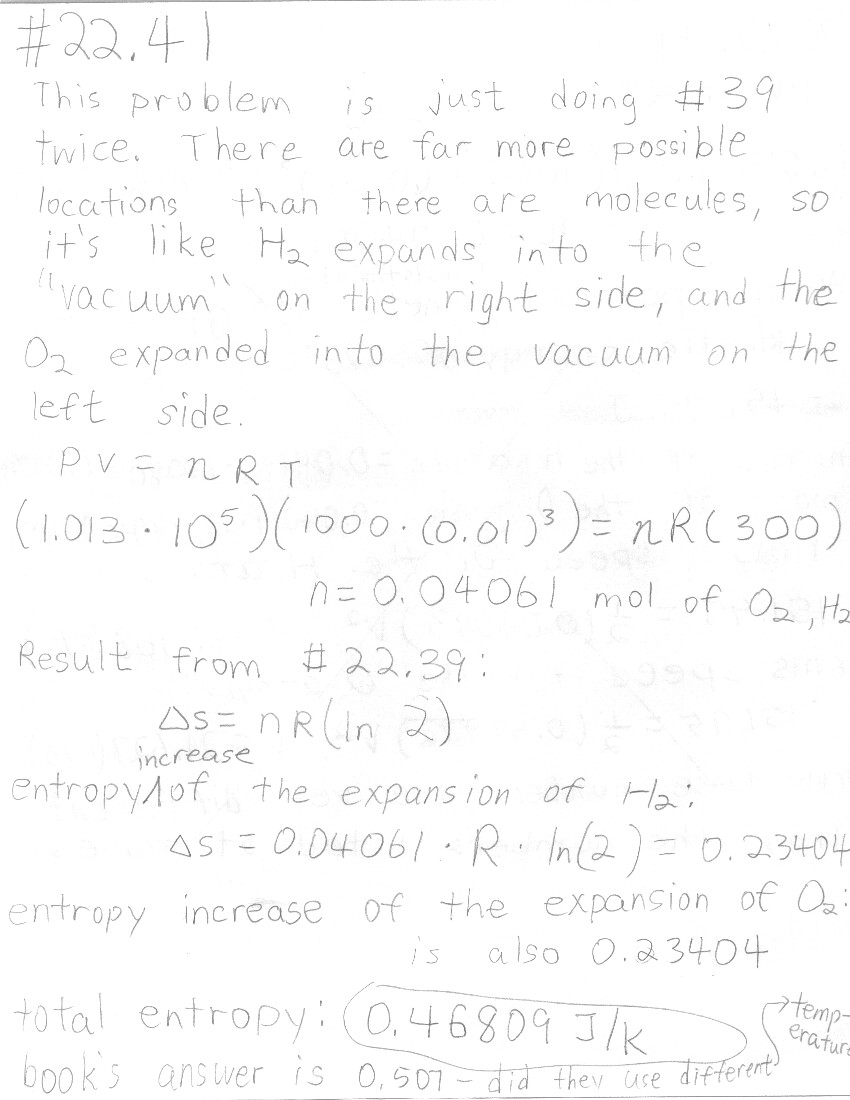 #22.41
This problem is just doing #39
twice. There are far more possible
locations than there are molecules, so
it's like H₂ expands into the
"vacuum" on the right side, and the
O₂ expanded into the vacuum on the
left side.
PV = nRT
(1.013 · 10⁵)(1000 · (0.01)³) = nR(300)
n = 0.04061 mol of O₂, H₂
Result from #22.39:
Δs = nR(ln 2)
increase
entropy∧of the expansion of H₂:
Δs = 0.04061 · R · ln(2) = 0.23404
entropy increase of the expansion of O₂:
is also 0.23404
total entropy: 0.46809 J/K
book's answer is 0.507 – did they use different
temp-
erature